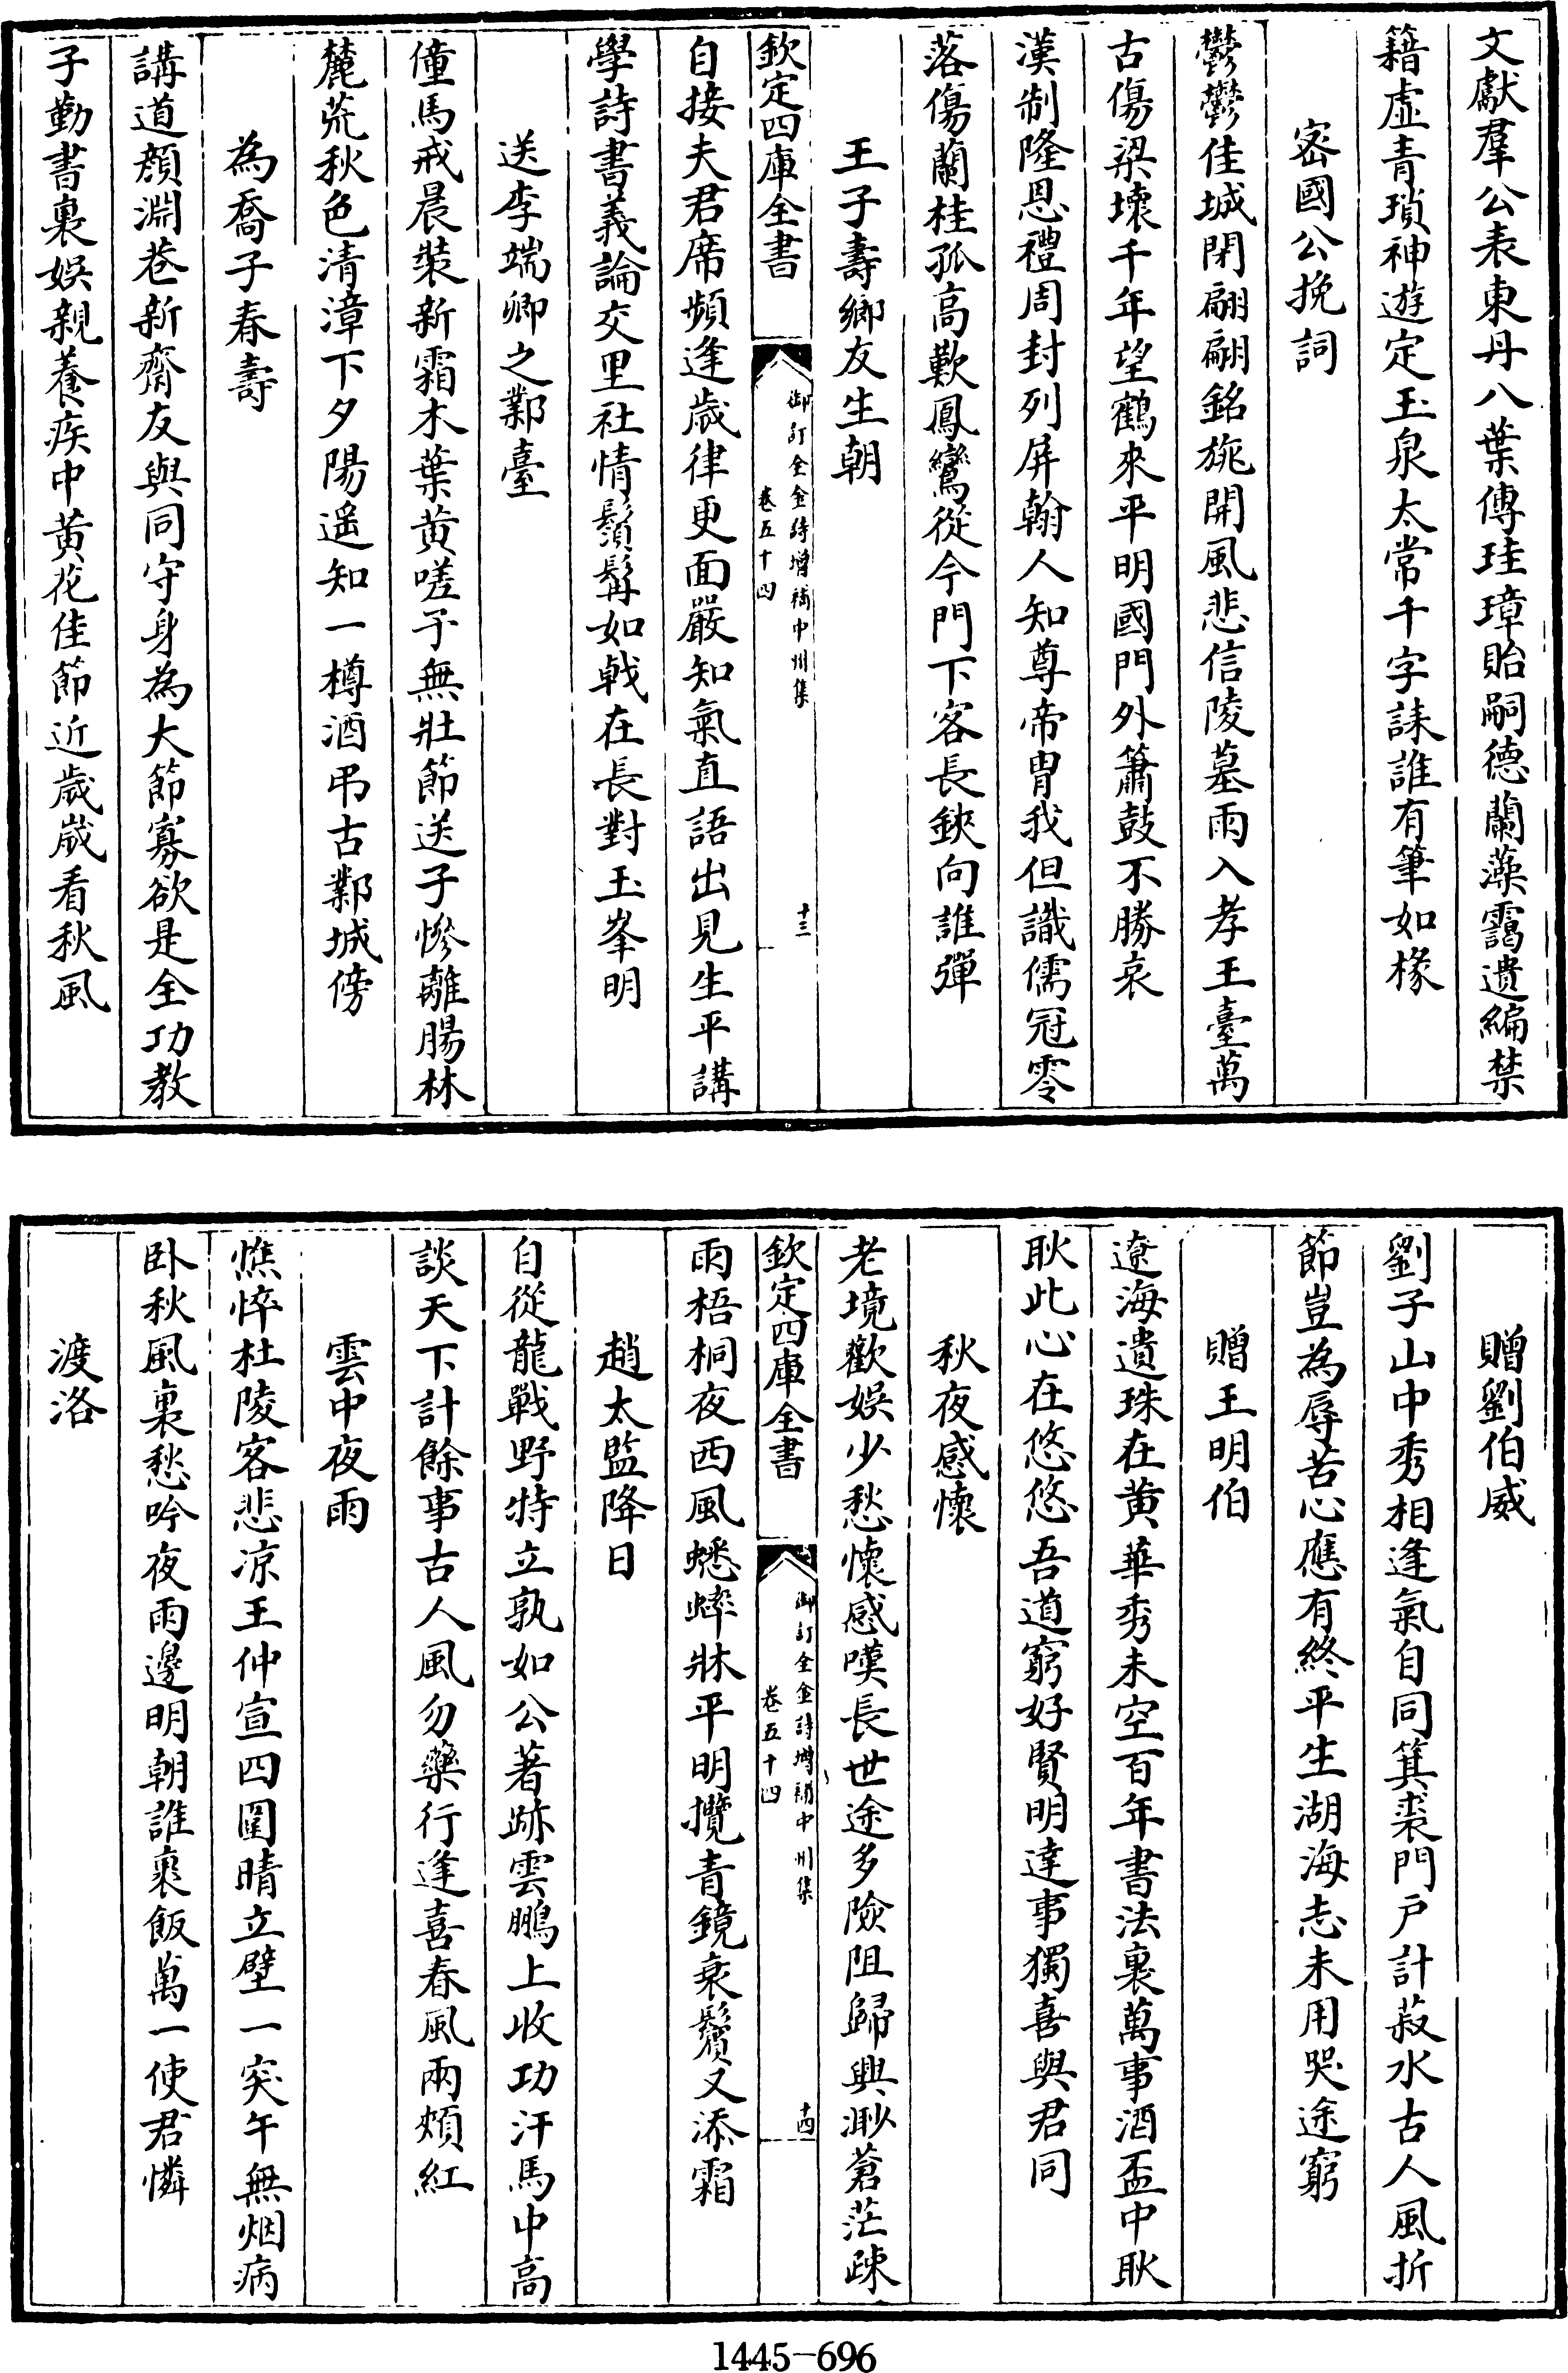 文獻羣公表東丹八葉傳珪璋貽嗣德蘭藻靄遺編禁
籍虛青瑣神遊定玉泉太常千字誄誰有筆如椽
密國公挽詞
鬱鬱佳城閉翩翩銘旐開風悲信陵墓雨入孝王臺萬
古傷梁壞千年望鶴來平明國門外簫鼓不勝哀
漢制隆恩禮周封列屏翰人知尊帝胄我但識儒冠零
落傷蘭桂孤高歎鳳鸞從今門下客長鋏向誰彈
王子壽鄉友生朝
欽定四庫全書
御訂全金詩增補中州集
卷五十四
十三
自接夫君席頻逢歲律更面嚴知氣直語出見生平講
學詩書義論交里社情鬚髯如戟在長對玉峯明
送李端卿之鄴臺
僮馬戒晨裝新霜木葉黄嗟予無壯節送子慘離腸林
麓荒秋色清漳下夕陽遥知一樽酒弔古鄴城傍
為喬子春壽
講道顔淵巷新齋友與同守身為大節寡欲是全功教
子勤書裏娛親養疾中黄花佳節近歲歲看秋風
贈劉伯威
劉子山中秀相逢氣自同箕裘門戶計菽水古人風折
節豈為辱苦心應有終平生湖海志未用哭途窮
贈王明伯
遼海遺珠在黄華秀未空百年書法裏萬事酒盃中耿
耿此心在悠悠吾道窮好賢明達事獨喜與君同
秋夜感懷
老境歡娛少愁懷感嘆長世途多險阻歸興渺蒼茫疎
欽定四庫全書
御訂全金詩增補中州集
卷五十四
十四
雨梧桐夜西風蟋蟀牀平明攬青鏡衰鬢又添霜
趙太監降日
自從龍戰野特立孰如公著跡雲鵬上收功汗馬中高
談天下計餘事古人風勿藥行逢喜春風兩頰紅
雲中夜雨
憔悴杜陵客悲凉王仲宣四圍晴立壁一突午無烟病
卧秋風裏愁吟夜雨邊明朝誰裹飯萬一使君憐
渡洛
1445-696